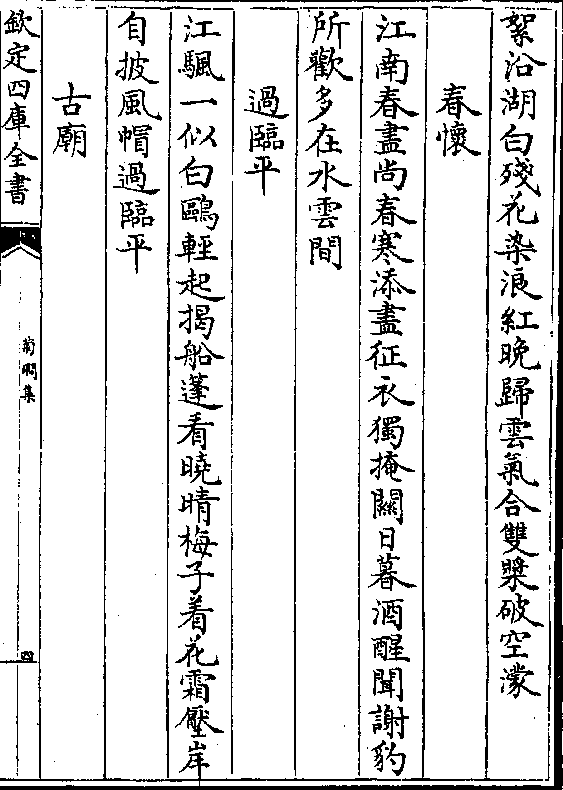 絮沿湖白殘花染浪紅晚歸雲氣合雙槳破空濛
春懷
江南春盡尚春寒添盡征衣獨掩關日暮酒醒聞謝豹
所歡多在水雲間
過臨平
江颿一似白鷗輕起揭船蓬看曉晴梅子着花霜壓岸
自披風帽過臨平
古廟
欽定四庫全書
菊磵集
四